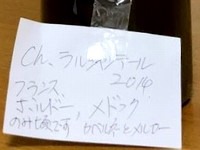 Ch, ラルシヤンテール
2014.
フランス、
ボルドー、メドック
のみ頃です カベルネとメルロー